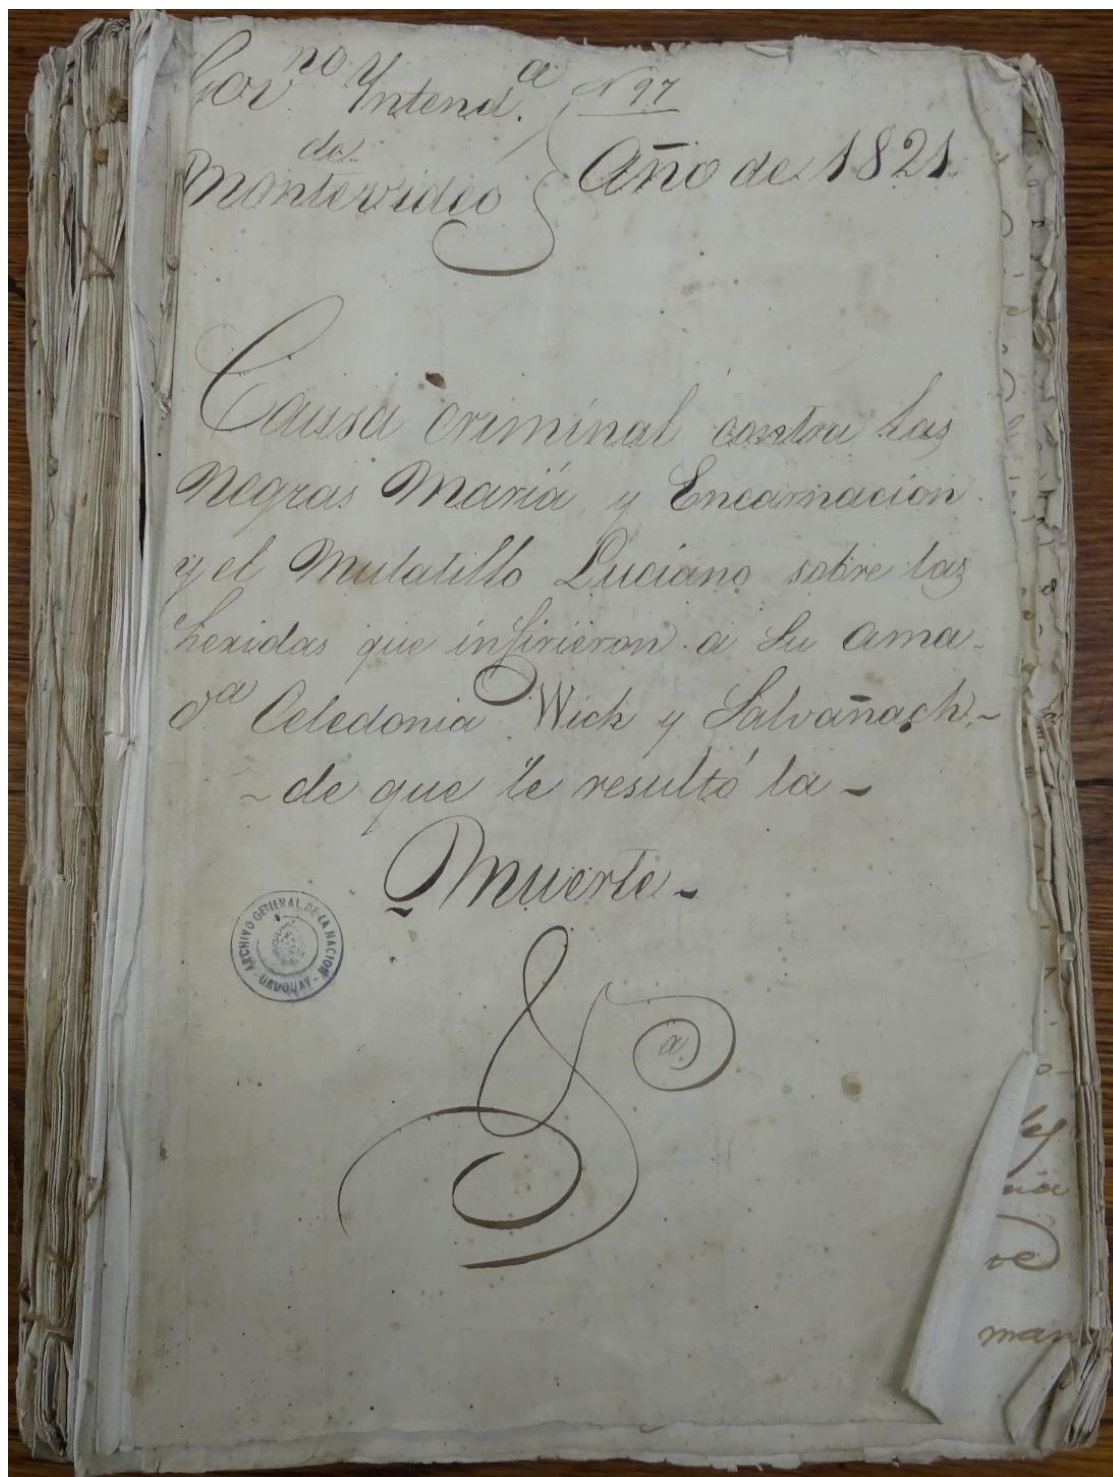 Gov.no Yntend.a
de
Montevideo
N 97
Año de 1821.
Causa criminal contra las
Negras María y Encarnacion
y el Mulatillo Luciano sobre las
heridas que infirieron a su ama
Da Celedonia Wich y Salvañach
de que le resultó la
Muerte
ARCHIVO GENERAL DE LA NACION
URUGUAY
a
ve
man